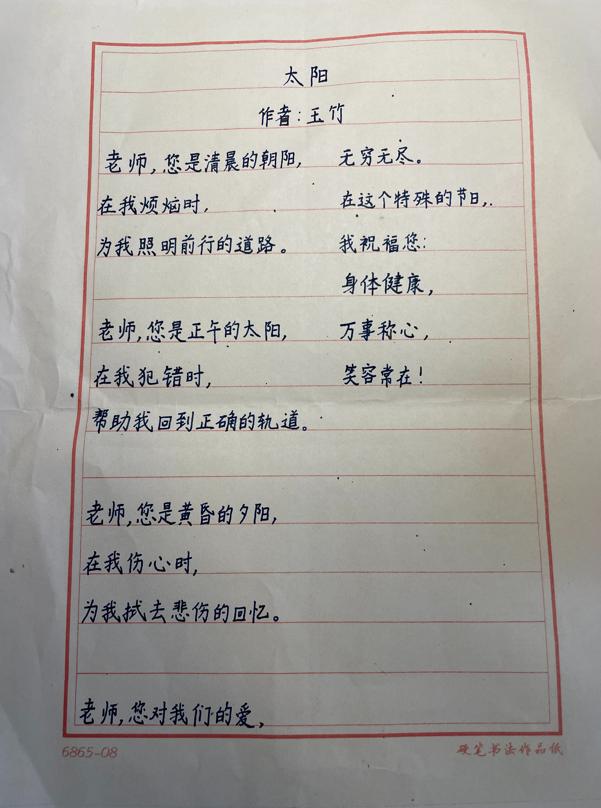 太阳
作者:王竹
老师,您是清晨的朝阳,
在我烦恼时,
为我照明前行的道路。
老师,您是正午的太阳,
在我犯错时,
帮助我回到正确的轨道。
老师,您是黄昏的夕阳,
在我伤心时,
为我拭去悲伤的回忆。
老师,您对我们的爱,
无穷无尽。
在这个特殊的节日,
我祝福您:
身体健康,
万事称心,
笑容常在!
6865-08
硬笔书法作品纸